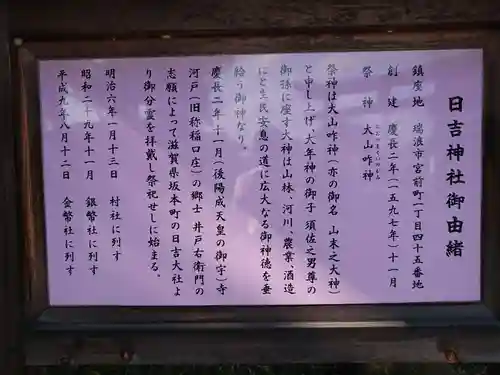 日吉神社御由緒
鎮座地 瑞浪市宮前町一丁目四十五番地
創建 慶長二年(一五九七年)十一月
祭神 大山咋神
祭神は大山咋神(亦の御名 山末之大神)
と申し上げ、大年神の御子 須佐之男尊の
御孫に座す大神は山林、河川、農業、酒造
にと生民安息の道に広大なる御神徳を垂
給う御神なり。
慶長二年十一月(後陽成天皇の御宇)寺
河戸(旧称稲口庄)の郷士 井戸右衛門の
志願によって滋賀県坂本町の日吉大社よ
り御分霊を拝戴し祭祝せしに始まる。
明治六年一月十三日 村社に列す
昭和二十九年十一月 銀幣社に列す
平成九年八月十二日 金幣社に列す